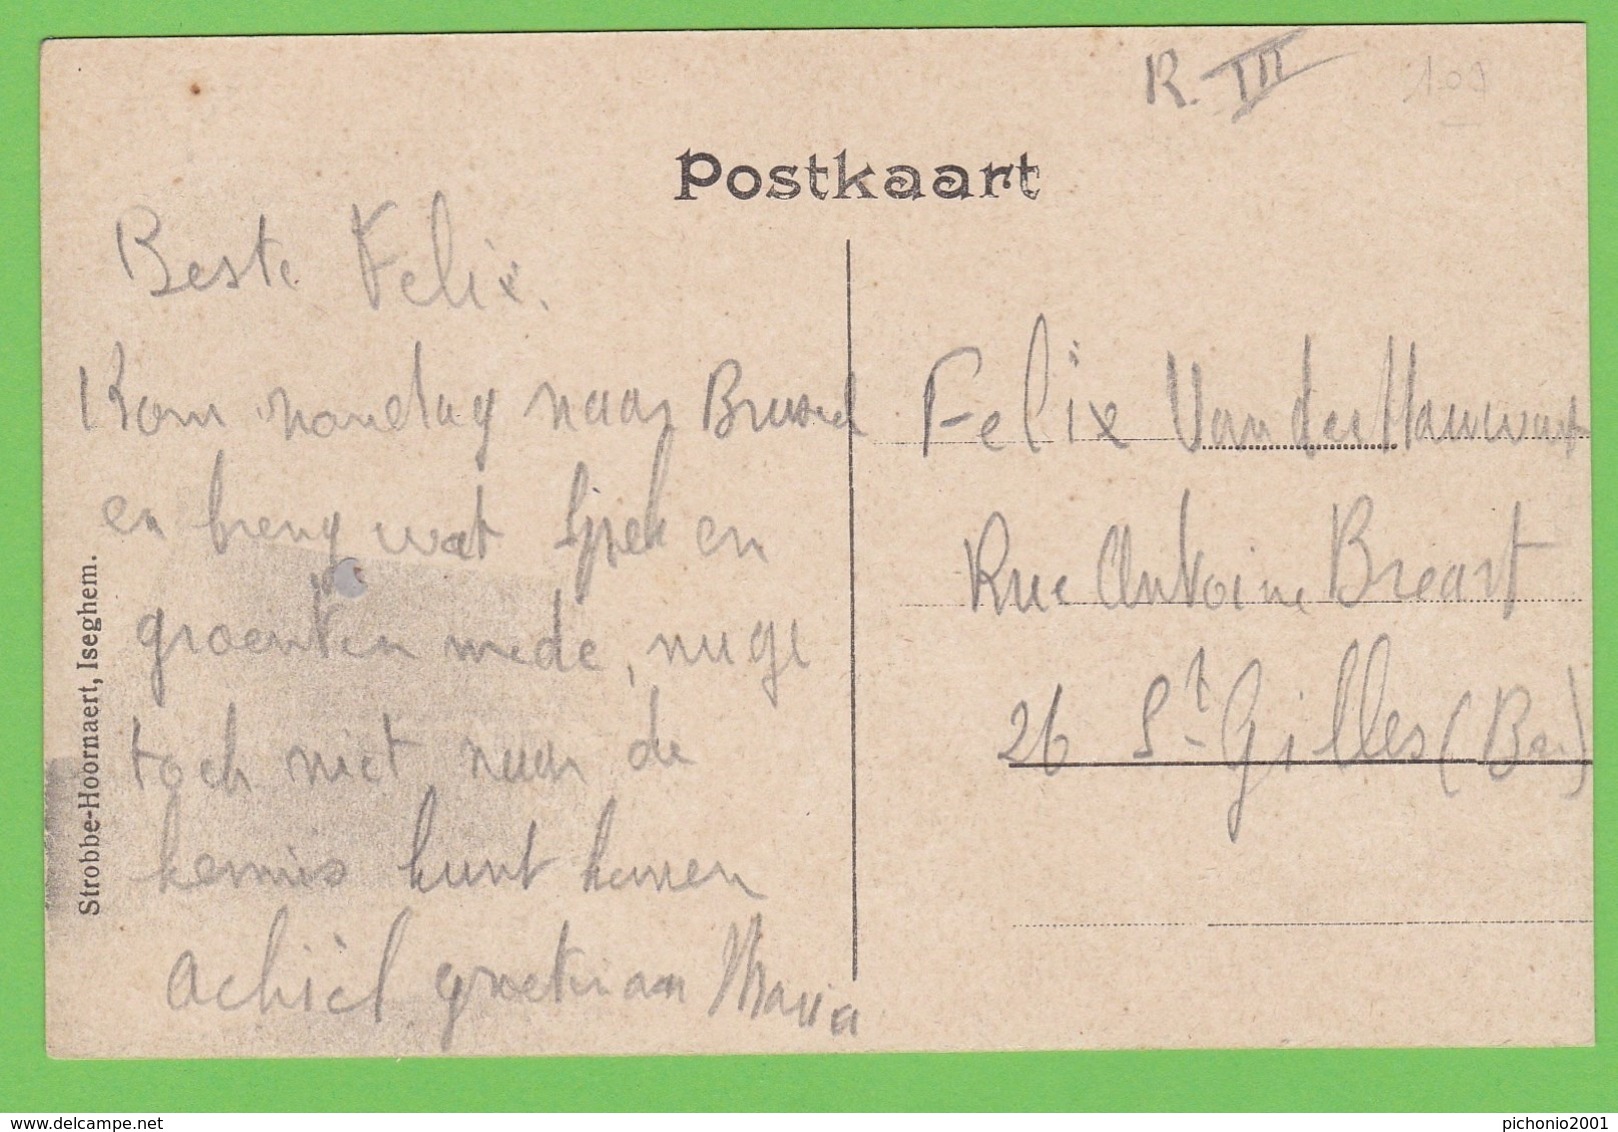 R. III
109
Postkaart
Beste Felix.
Kom mandag naar Brussel
en breng wat Spek en
groenten mede,
toch niet naar de
kermis kunt komen
achiel groeten aan Maria
Strobbe-Hoornaert, Iseghem.
Felix Van der Hauwaert
Rue Antoine Breart
26 St Gilles (Br.)
pichonio2001